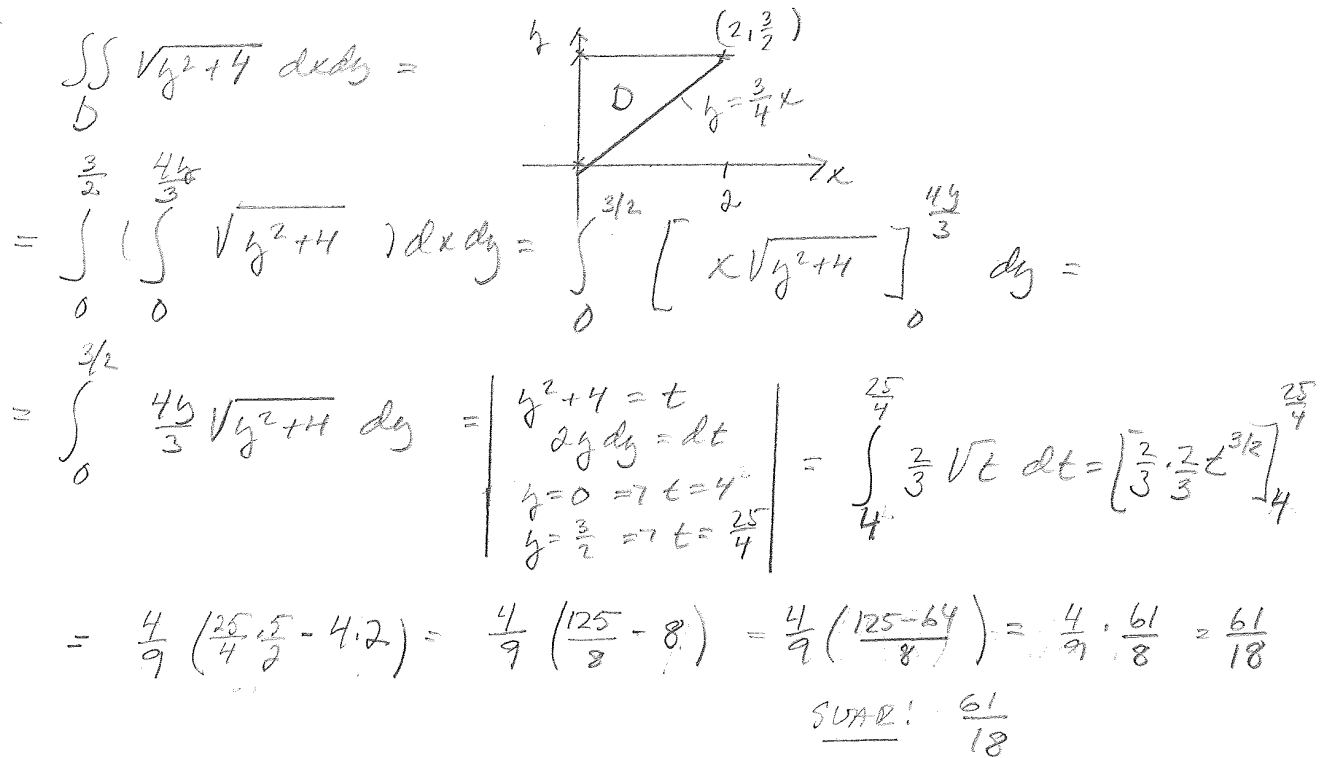 ∬_D √(y²+4) dxdy =
y (2, 3/2)
D y = 3/4 x
x
2
= ∫_0^{3/2} ( ∫_0^{4y/3} √(y²+4) ) dxdy = ∫_0^{3/2} [ x√(y²+4) ]_0^{4y/3} dy =
= ∫_0^{3/2} 4y/3 √(y²+4) dy = | y²+4 = t
2y dy = dt
y=0 => t=4
y=3/2 => t=25/4 | = ∫_4^{25/4} 2/3 √t dt = [ 2/3 · 2/3 t^{3/2} ]_4^{25/4}
= 4/9 ( 25/4 · 5/2 - 4·2 ) = 4/9 ( 125/8 - 8 ) = 4/9 ( (125-64)/8 ) = 4/9 · 61/8 = 61/18
SVAR! 61/18